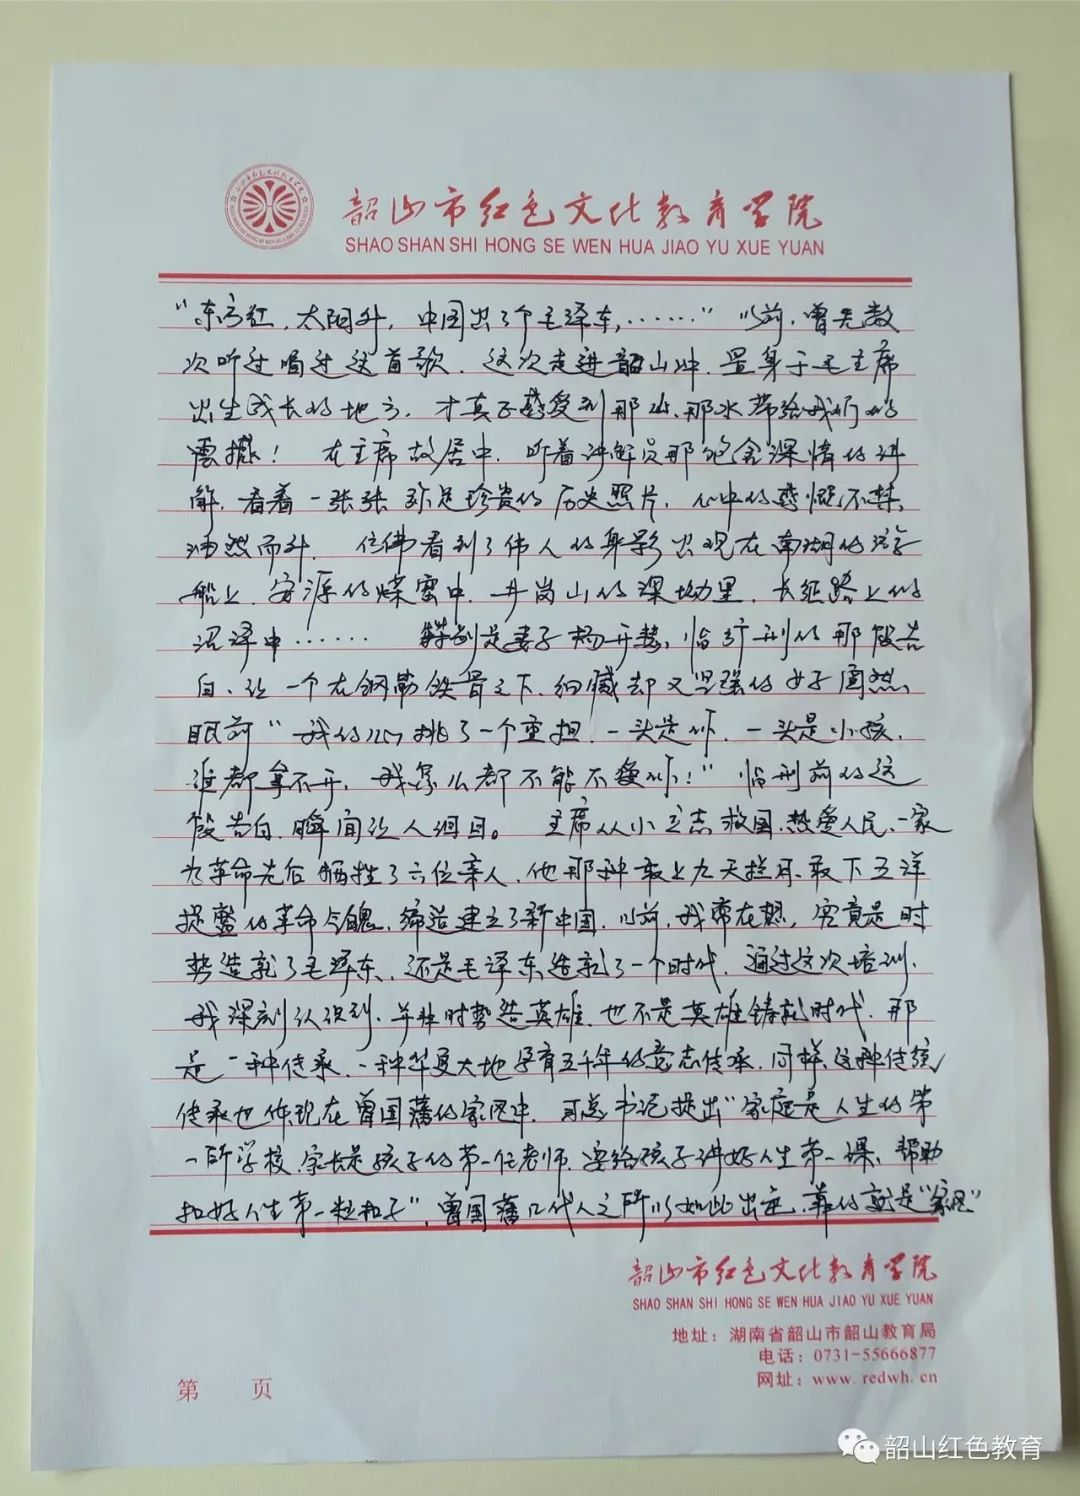 韶山市红色文化教育学院
SHAO SHAN SHI HONG SE WEN HUA JIAO YU XUE YUAN
“东方红，太阳升，中国出了个毛泽东，……”以前，曾无数
次听过唱过这首歌，这次走进韶山冲，置身于毛主席
出生成长的地方，才真正感受到那山、那水带给我们的
震撼！在主席故居中，听着讲解员那饱含深情的讲
解，看着一张张弥足珍贵的历史照片，心中的感慨不禁
油然而升，仿佛看到了伟人的身影出现在南湖的游
船上、安源的煤窑中、井岗山的深坳里、长征路上的
沼泽中……特别是妻子杨开慧，临行刑的那段告
白，让一个在钢筋铁骨之下，细腻却又坚强的女子
眼前“我的心挑了一个重担，一头是你，一头是小孩，
谁都拿不开，我怎么都不能不爱你！”临刑前的这
段告白，瞬间让人泪目。主席从小立志救国，热爱人民，一家
为革命先后牺牲了六位亲人，他那种敢上九天揽月，敢下五洋
捉鳖的革命气魄，缔造建立了新中国，以前，我常在想，究竟是时
势造就了毛泽东，还是毛泽东造就了一个时代，通过这次培训，
我深刻认识到，并非时势造英雄，也不是英雄铸就时代，那
是一种传承，一种华夏大地孕育五千年的意志传承，同样，这种传统
传承也体现在曾国藩的家风中，习总书记提出“家庭是人生的第
一所学校，家长是孩子的第一任老师，要给孩子讲好人生第一课，帮助
扣好人生第一粒扣子”，曾国藩几代人之所以如此出，靠的就是“家风”
韶山市红色文化教育学院
SHAO SHAN SHI HONG SE WEN HUA JIAO YU XUE YUAN
地址：湖南省韶山市韶山教育局
电话：0731-55666877
网址：www.redwh.cn
第 页
韶山红色教育